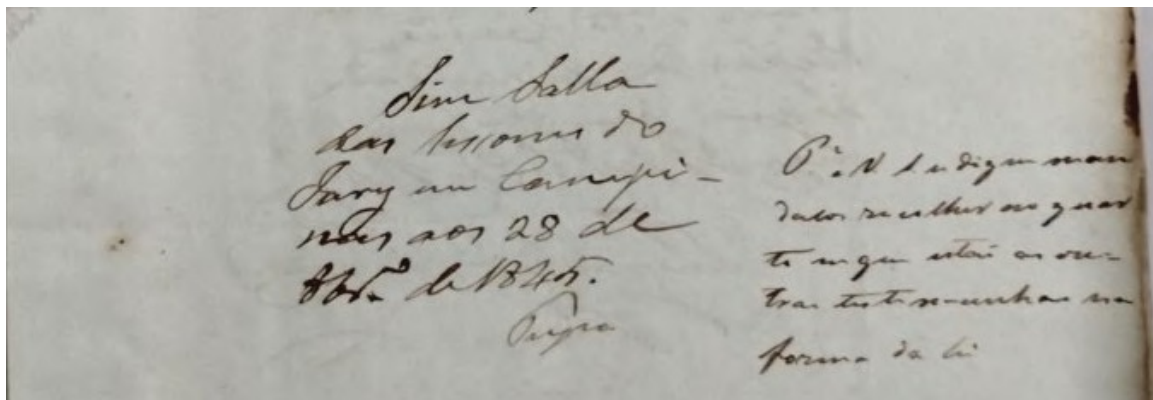 Sim Salla
das Sessoens do
Jury em Campi-
nas aos 28 de
8br.o de 1845.
P. a V. S. se digne man
dalos recolher ao quar
to em que estão as ou-
tras testemunhas na
forma da lei